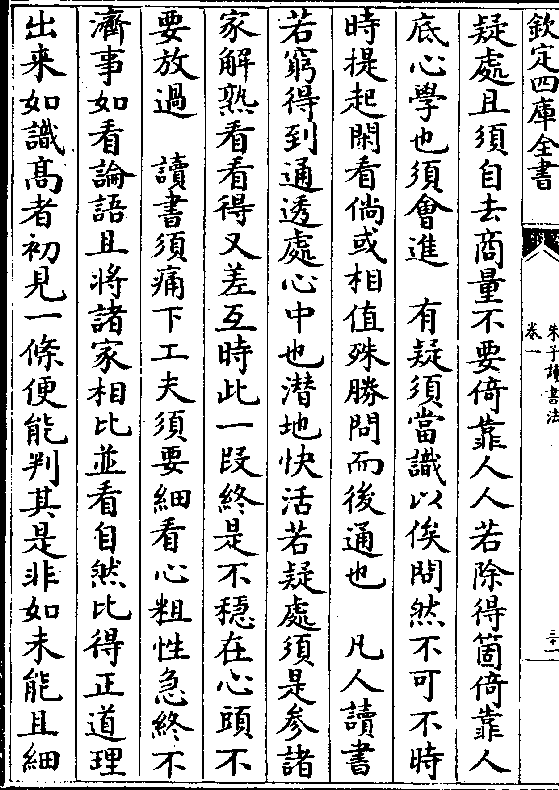 欽定四庫全書
朱子讀書法
卷一
三十一
疑處且須自去商量不要倚靠人人若除得箇倚靠人
底心學也須會進　有疑須當識以俟問然不可不時
時提起閑看倘或相值殊勝問而後通也　凡人讀書
若窮得到通透處心中也潜地快活若疑處須是参諸
家解熟看看得又差互時此一段終是不穏在心頭不
要放過　讀書須痛下工夫須要細看心粗性急終不
濟事如看論語且將諸家相比並看自然比得正道理
出来如識髙者初見一條便能判其是非如未能且細